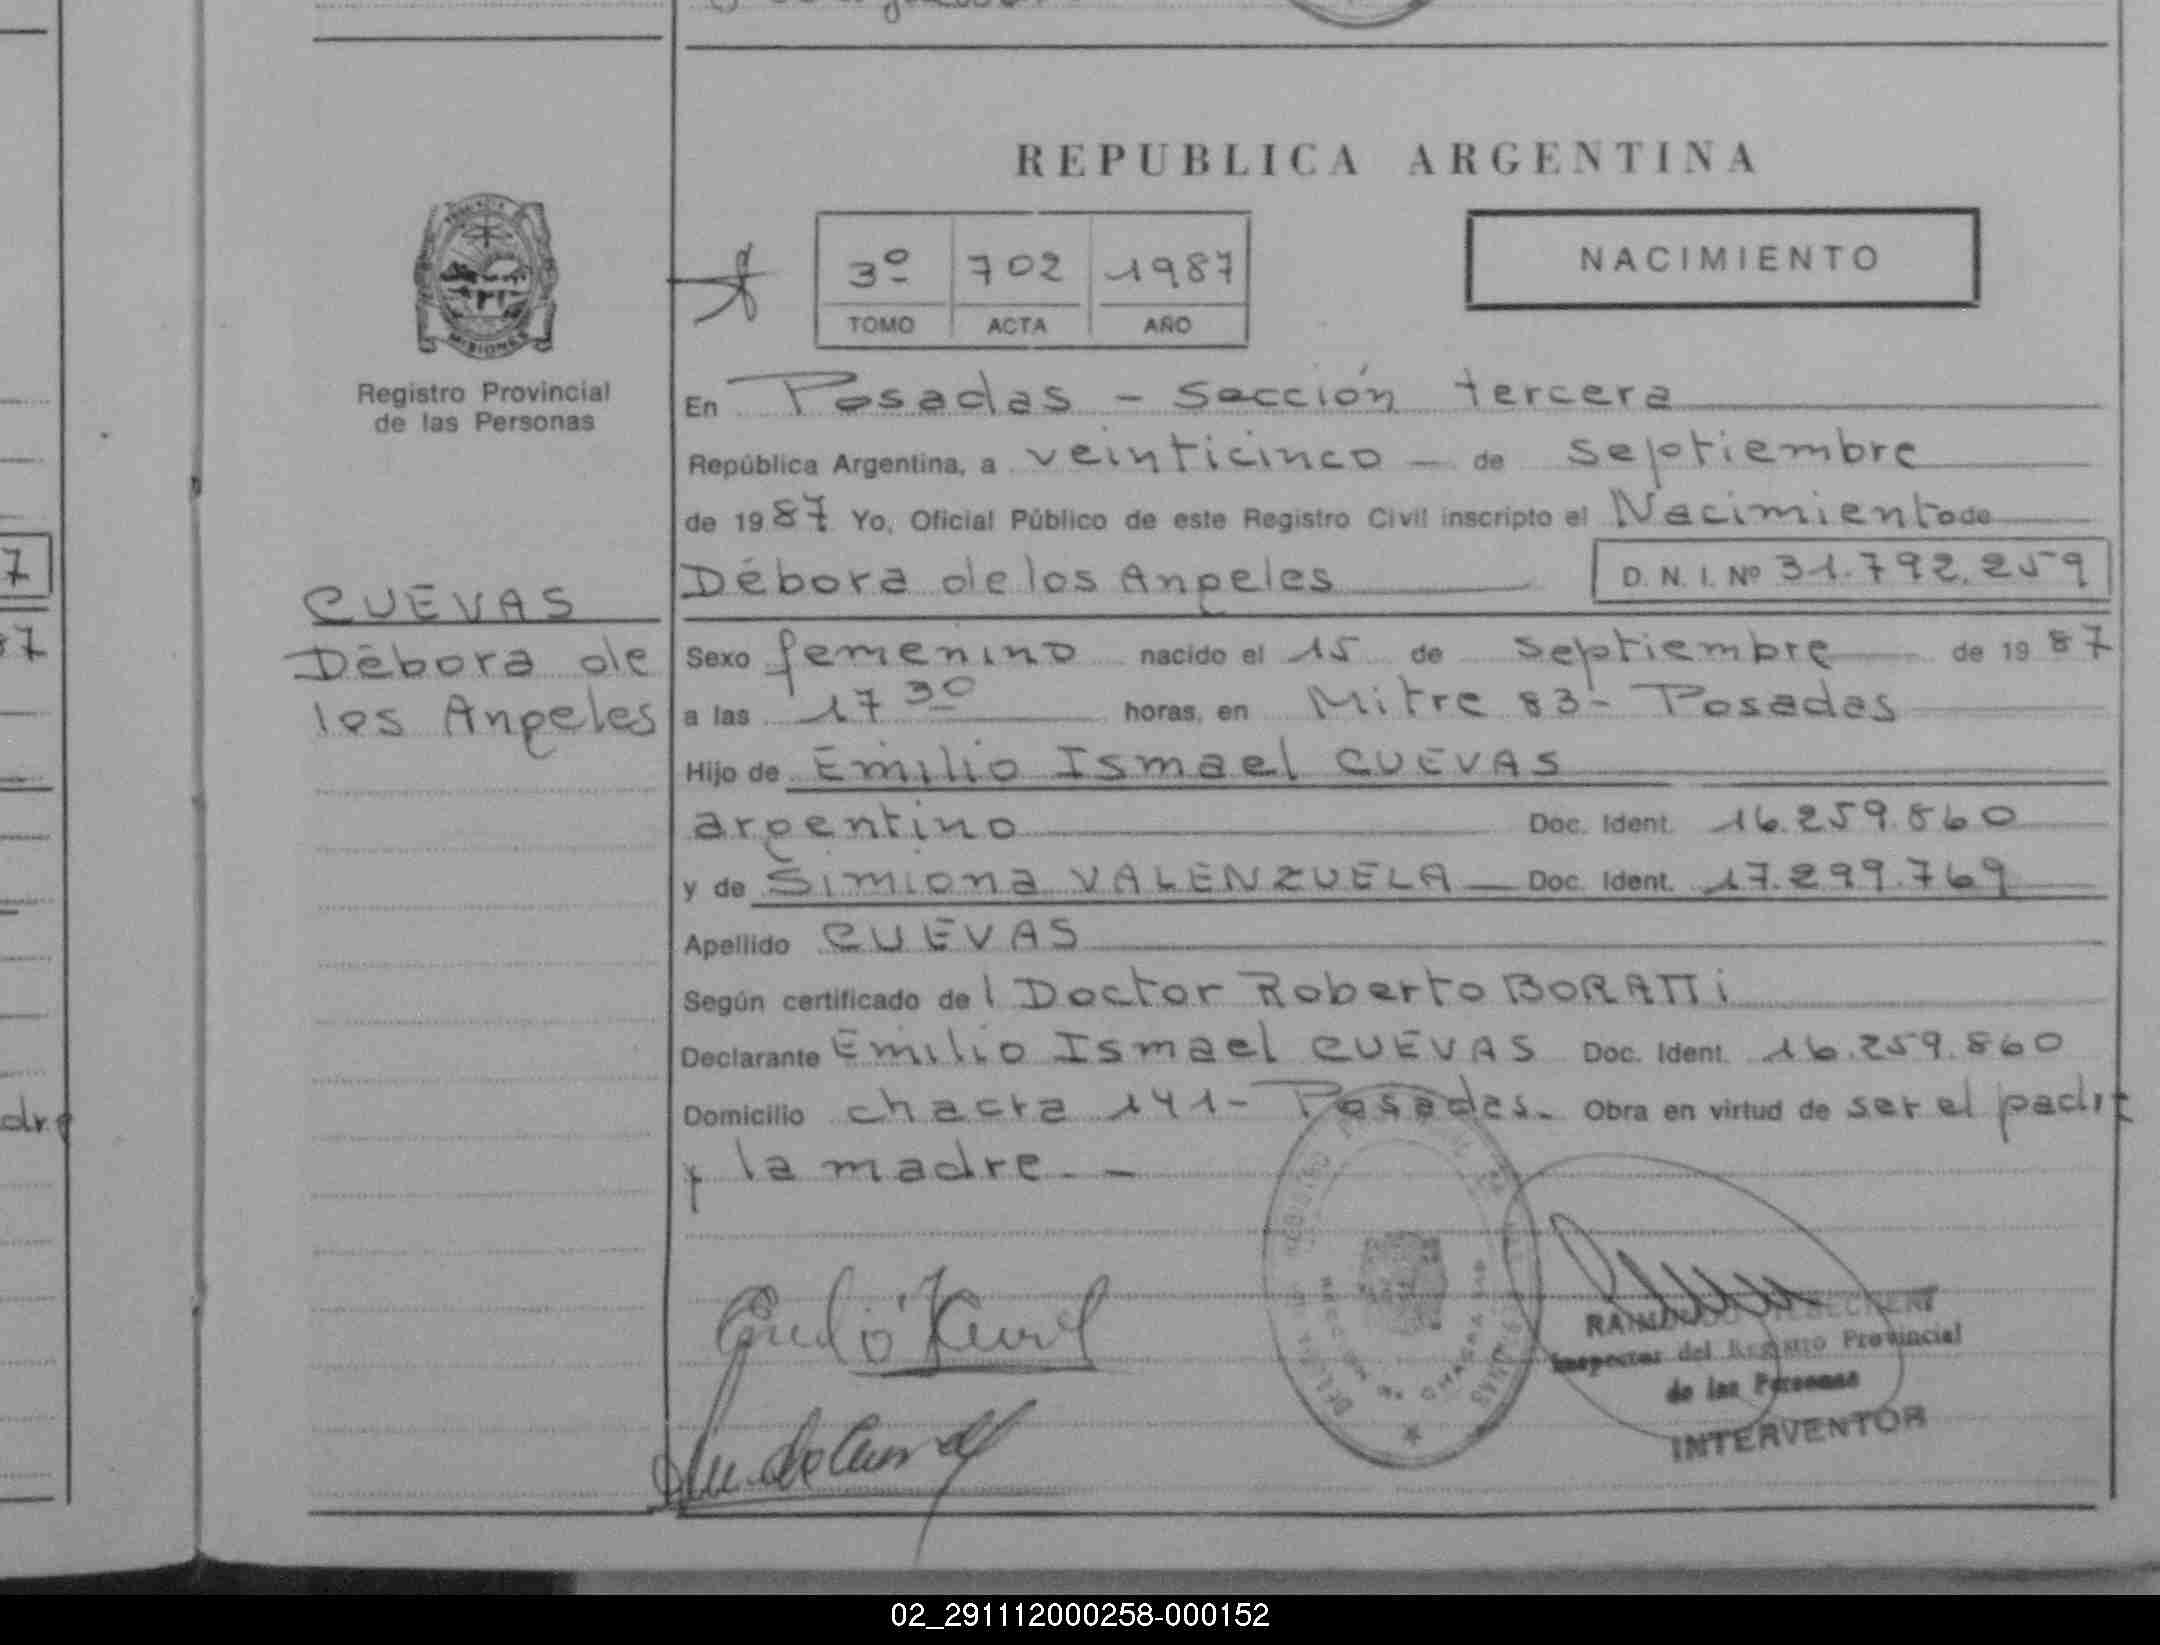 REPUBLICA ARGENTINA
MISIONES
Registro Provincial
de las Personas
3º 702 1987
TOMO ACTA AÑO
NACIMIENTO
En Posadas - Sección tercera
República Argentina, a veinticinco - de septiembre
de 1987 Yo, Oficial Público de este Registro Civil inscripto el Nacimiento de
Débora de los Angeles D. N. I. Nº 31.792.259
CUEVAS
Débora de
los Angeles
Sexo femenino nacido el 15 de septiembre de 1987
a las 17 30 horas, en Mitre 83 - Posadas
Hijo de Emilio Ismael CUEVAS
argentino Doc. Ident. 16.259.860
y de Simiona VALENZUELA Doc. Ident. 17.299.769
Apellido CUEVAS
Según certificado del Doctor Roberto BORATTi
Declarante Emilio Ismael CUEVAS Doc. Ident. 16.259.860
Domicilio chacra 141 - Posadas.- Obra en virtud de ser el padre
y la madre.-
Inspector del Registro Provincial
de las Personas
INTERVENTOR
7
87
adre
02_291112000258-000152